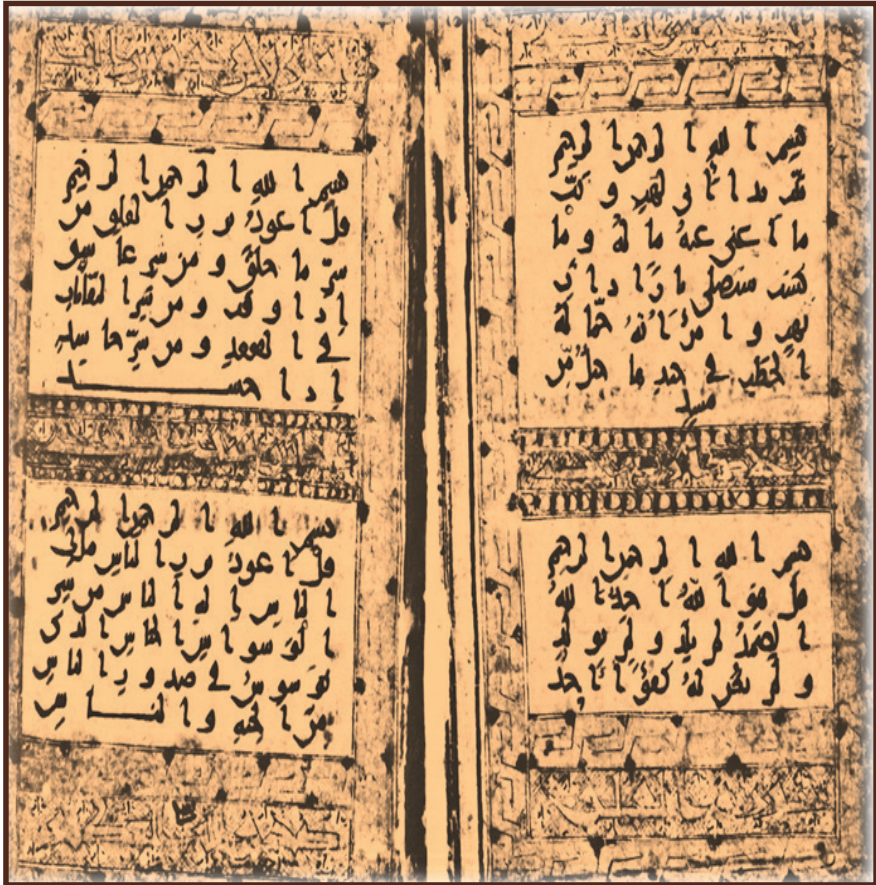 بسم الله الرحمن الرحيم
تبت يدا ابي لهب وتب
ما اغنى عنه ماله وما
كسب سيصلى نارا ذات
لهب وامراته حمالة
الحطب في جيدها حبل من
مسد
بسم الله الرحمن الرحيم
قل هو الله احد الله
الصمد لم يلد ولم يولد
ولم يكن له كفوا احد
بسم الله الرحمن الرحيم
قل اعوذ برب الفلق من
شر ما خلق ومن شر غاسق
اذا وقب ومن شر النفاثات
في العقد ومن شر حاسد
اذا حسد
بسم الله الرحمن الرحيم
قل اعوذ برب الناس ملك
الناس اله الناس من شر
الوسواس الخناس الذي
يوسوس في صدور الناس
من الجنة والناس